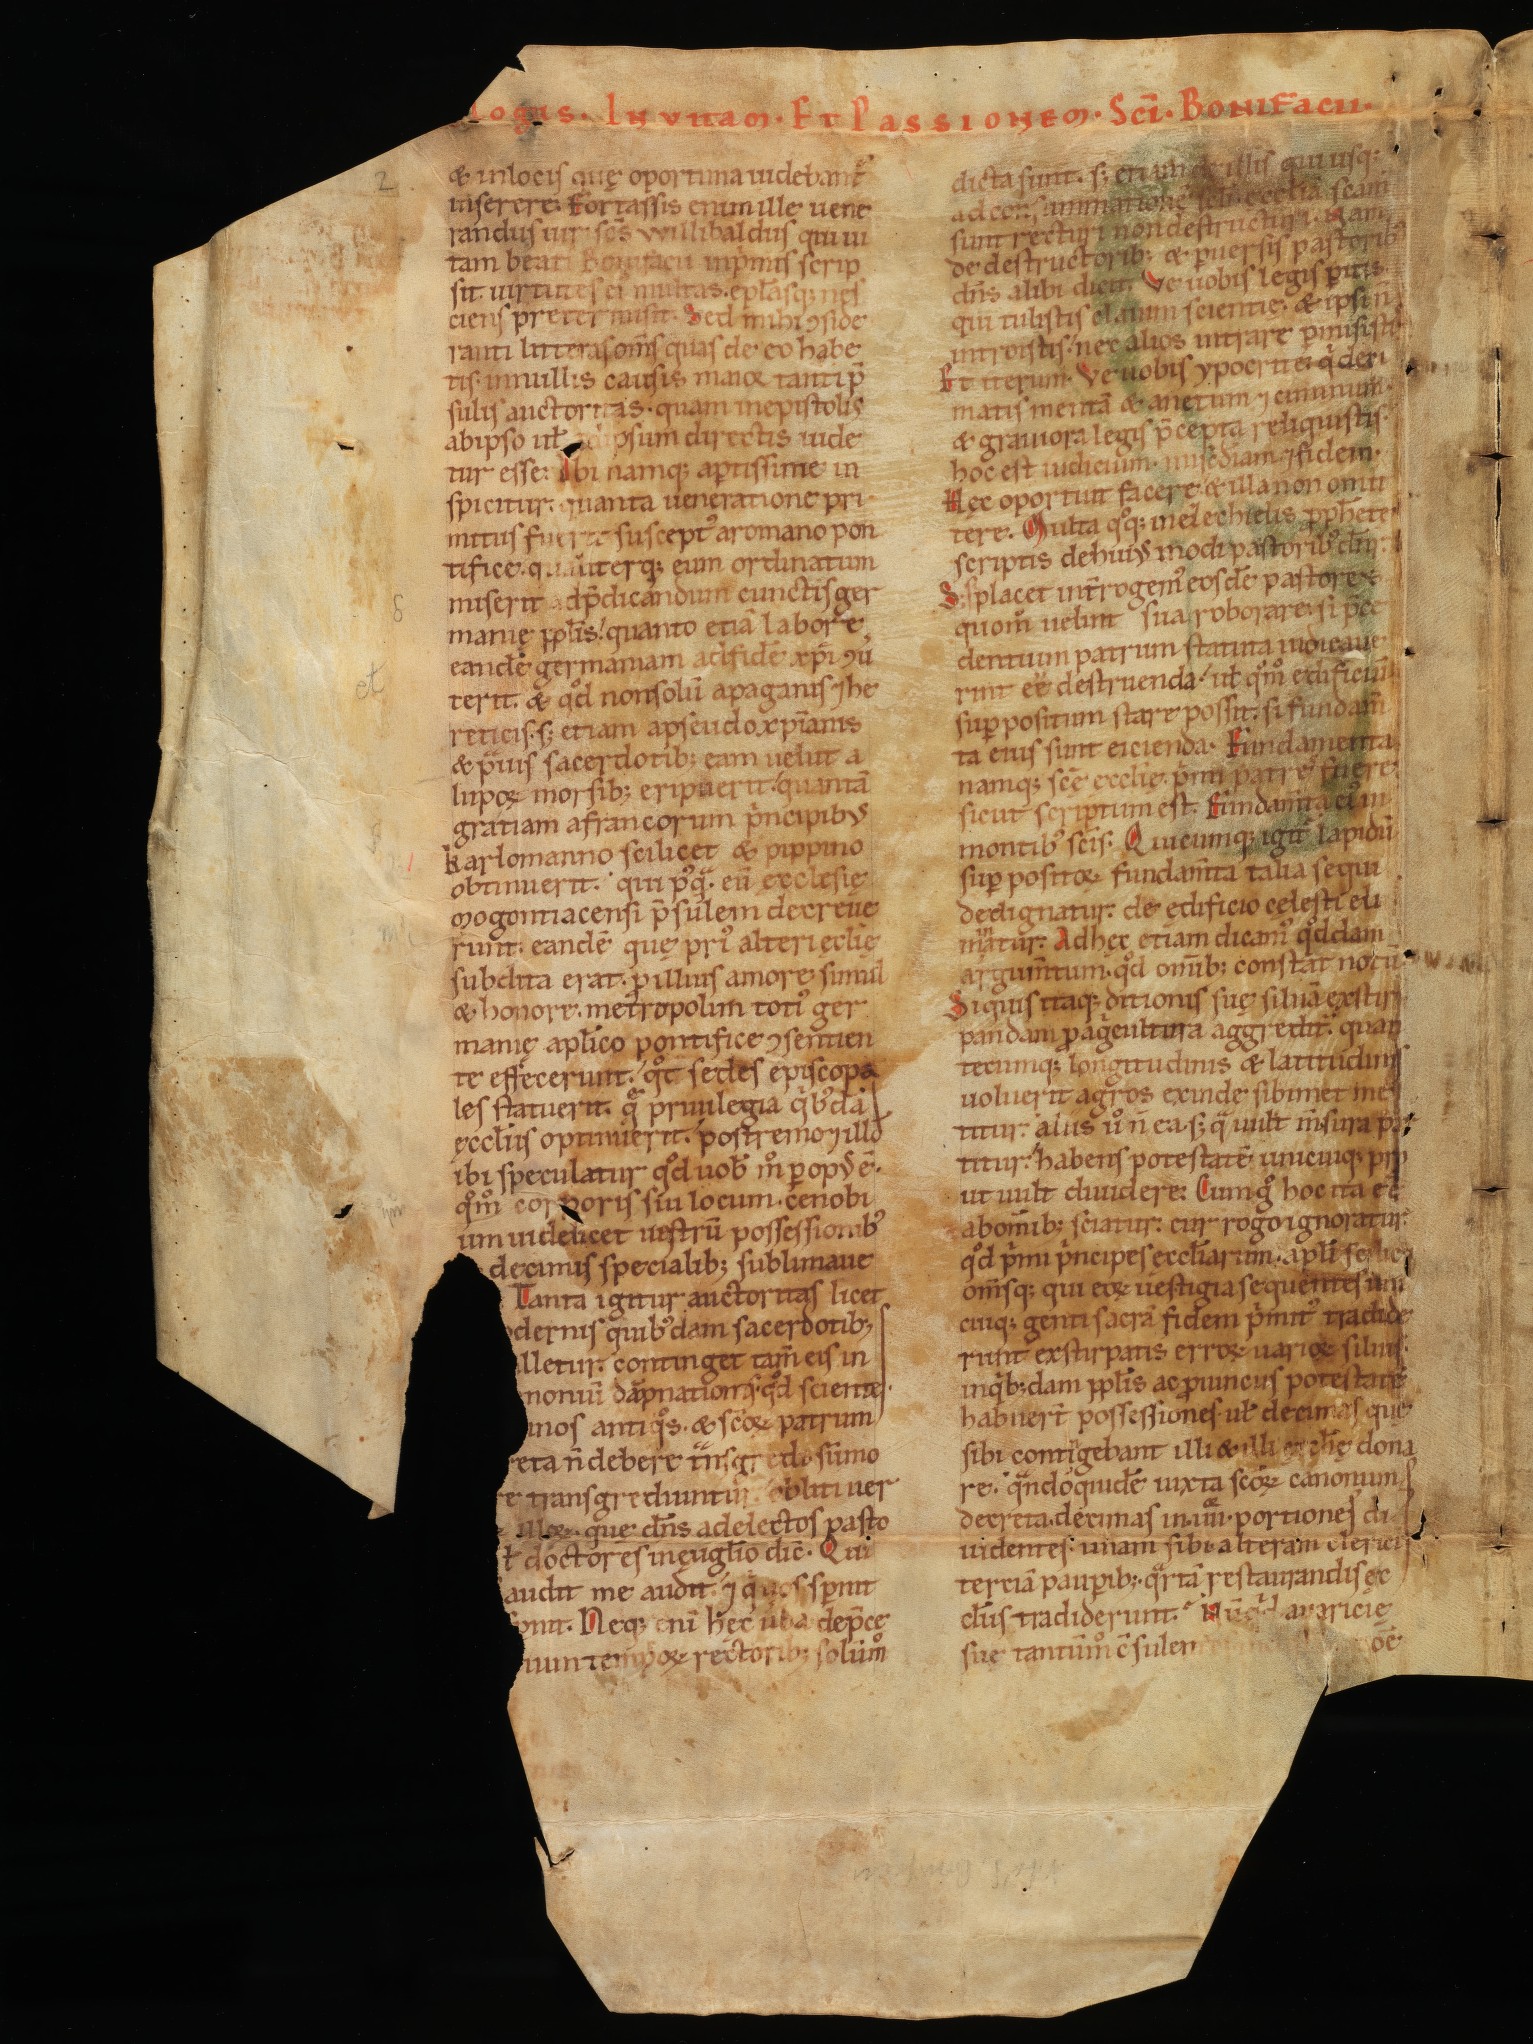 logus. In vitam. Et Passionem. Sc̄i. Bonifacii.
& in locis quę oportuna uidebant᷑
inserere. Fortassis enim ille uene
randus uir sc̄s Willibaldus qui ui
tam beati Bonifacii inprimis scrip
sit. uirtutes ei multas. eplasq; nes
ciens pretermisit. Sed mihi ꝯside
ranti litteras om̄s quas de eo habe
tis. in nullis causis maioꝝ tanti p̄
sulis auctoritas. quam in epistolis
ab ipso ut ad ipsum directis uide
tur esse. Ibi namq; aptissime in
spicitur. quanta ueneratione pri
mitus fuerit suscept᷒ a romano pon
tifice. qualiterq; eum ordinatum
miserit ad p̄dicandum cunctis ger
manię pplis. quanto etiā labore
eandē germaniam ad fidē xp̄i ꝯu̅
terit. & qd̊ non solū a paganis ⁊ he
reticis. s; etiam a pseudo xp̄ianis
& p̲uis sacerdotib; eam uelut a
lupoꝝ morsib; eripuerit. quantā
gratiam a francorum p̄ncipib᷒
karlomanno scilicet & pippino
obtinuerit. qui p᷒q̊. eū ecclesię
mogontiacensi p̄sulem decreue
runt. eandē quę pri᷒ alteri eclię
subdita erat. ꝑ illius amore simul
& honore. metropolim toti᷒ ger
manię aplico pontifice ꝯsentien
te effecerunt. q̊t sedes episcopa
les statuerit. q̄ priuilegia q̇b᷒dā
ęccliis optinuerit. postremo ⁊ illd̊
ibi speculatur qd̊ uob̄ m̊ ꝑ op᷒ ē.
qm̊ corporis sui locum. cenobi
um uidelicet uestrū possessionib᷒
decimis specialib; sublimaue
Tanta igitur auctoritas licet
odernis quib᷒dam sacerdotib;
lletur. continget tam̄ eis in
moniū dāpnationis. qd̊ scientes
inos antiq̊s. & scōꝝ patrum
reta n̄ debere t̄nsgredi summo
re transgrediuntur. obliti uer
illoꝝ. que dn̄s ad electos pasto
t doctores in ęuglio dic̄. Qui
audit me audit. ⁊ qui uos sp̲nit
ꝑnit. Neq; eni hęc uba de p̄ce
tium tempoꝝ rectorib; solūm̊
dicta sunt. s; etiam de illis qui usq;
ad consummationē scli eccliā scam̄
sunt recturi non destructuri. Nam
de destructorib; & ꝑuersis pastorib᷒
dn̄s alibi dicit. Ve uobis legis ꝑitis
qui tulistis clauim scientie. & ipsi n̄
introistis. nec alios intrare ꝑmisistis.
Et iterum. Ve uobis ypocrite. q̇ deci
matis mentā & anetum ⁊ ciminum.
& grauiora legis p̄cepta reliquistis.
hoc est iudicium. misc̄diam. ⁊ fidem.
Hęc oportuit facere. & illa non omit
tere. Multa q̊q; in ezechielis pphete
scriptis de hui᷒modi pastorib᷒ dn̄r.
Si placet int̄rogem᷒ eosdē pastores
quom̊ uelint sua roborare. si p̄ce
dentium patrum statuta iudicaue
rint eē destruenda. ut qm̊ edificiū
sup̲positum stare possit. si fundam̄
ta eius sunt eicienda. Fundamenta
namq; scē ecclie. p̄mi patres fuere
sicut scriptum est. Fundam̄ta ei᷒ in
montib᷒ scis. Quicumq; igit᷑ lapidū
sup̲positoꝝ fundam̄ta talia sequi
dedignatur. de edificio celesti eli
minatur. Ad hęc etiam dicam᷒ qd̊dam
argum̄tum. qd̊ omib; constat notū.
Si quis itaq; ditionis suę siluā exstir
pandam ꝓ agricultura aggredit᷑. quan
tecumq; longitudinis & latitudinis
uoluerit agros exinde sibimet me
titur. aliis ů n̄ ea. s; q̄ uult m̄sura par
titur. habens potestatē unicuiq; pro
ut uult diuidere. Cum g̊ hoc ita eē
ab omib; sciatur. cur rogo ignoratur.
qd̊ p̄mi p̄ncipes eccliarum. apli scilicet
om̄sq; qui eoꝝ uestigia sequentes uni
cuiq; genti sacrā fidem p̄mit᷒ tradide
runt exstirpatis erroꝝ uarioꝝ siluis.
in q̇b;dam pplis ac ꝓuinciis potestatē
habuert̄ possessiones. ut decimas quę
sibi contigebant illi & illi ecclię dona
re. qn̄doquidē iuxta scōꝝ canonum
decreta. decimas in .iiii. portiones di
uidentes. unam sibi. alteram clericis
terciā paup̲ib;. q̄rtā restaurandis ec
cliis tradiderunt. Nūquid auaricię
suę tantūm̊ c̄sulen oē